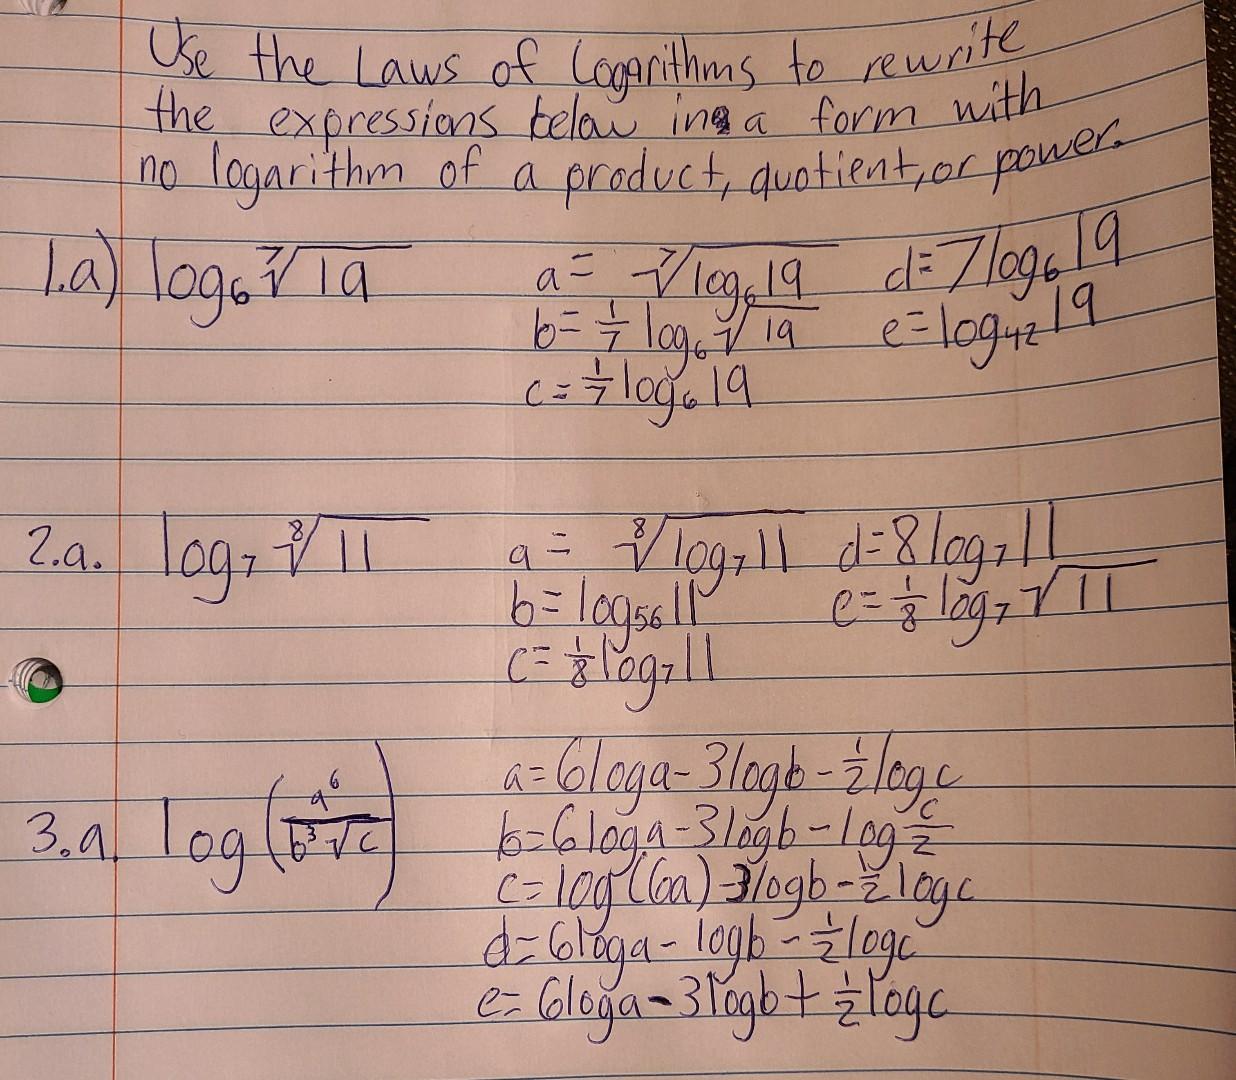 Use the Laws of Logarithms to rewrite
the expressions below in a form with
no logarithm of a product, quotient, or power.
1.a) log₆ ⁷√19
a = ⁷√log₆19
d = 7log₆19
b = 1/7 log₆ √19
e = log₄₂19
c = 1/7 log₆19
2.a. log₇ ⁸√11
a = ⁸√log₇11
d = 8log₇11
b = log₅₆11
e = 1/8 log₇ √11
c = 1/8 log₇11
3.a. log(a⁶/(b³√c))
a = 6loga - 3logb - 1/2 logc
b = 6loga - 3logb - log c/2
c = log(6a) - 3logb - 1/2 logc
d = 6loga - logb - 1/2 logc
e = 6loga - 3logb + 1/2 logc